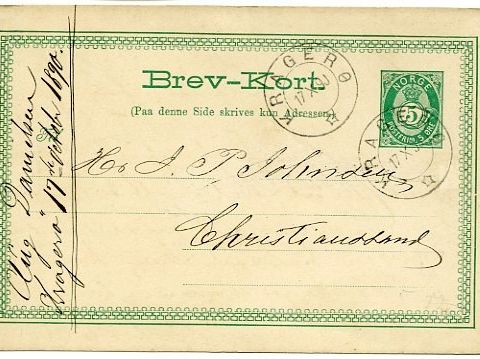 Brev-Kort.
(Paa denne Side skrives kun Adressen)
NORGE
5
POSTFRIM 5 ØRE
KRAGERØ
17 X 90
KRAGERØ
17 X 90
Hr. J. P. Johnsen
Christianssand
Aug Danielsen
Kragerø 17de Octbr 1890.